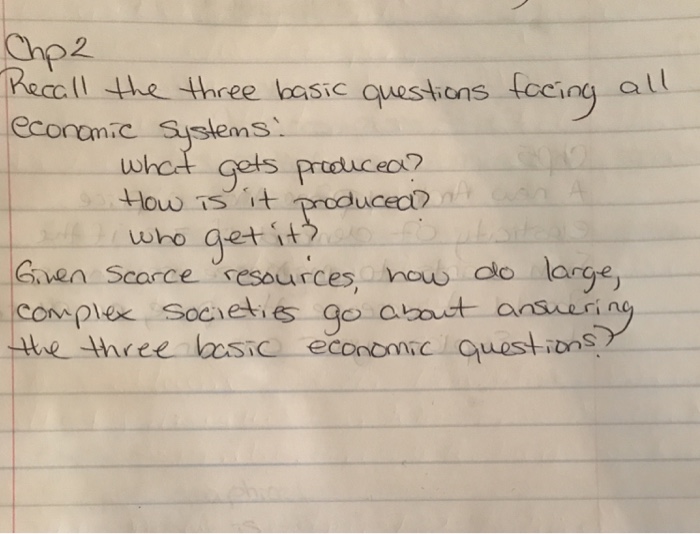 Chp 2
Recall the three basic questions facing all
economic systems:
what gets produced?
How is it produced?
who get it?
Given scarce resources, how do large,
complex societies go about answering
the three basic economic questions?